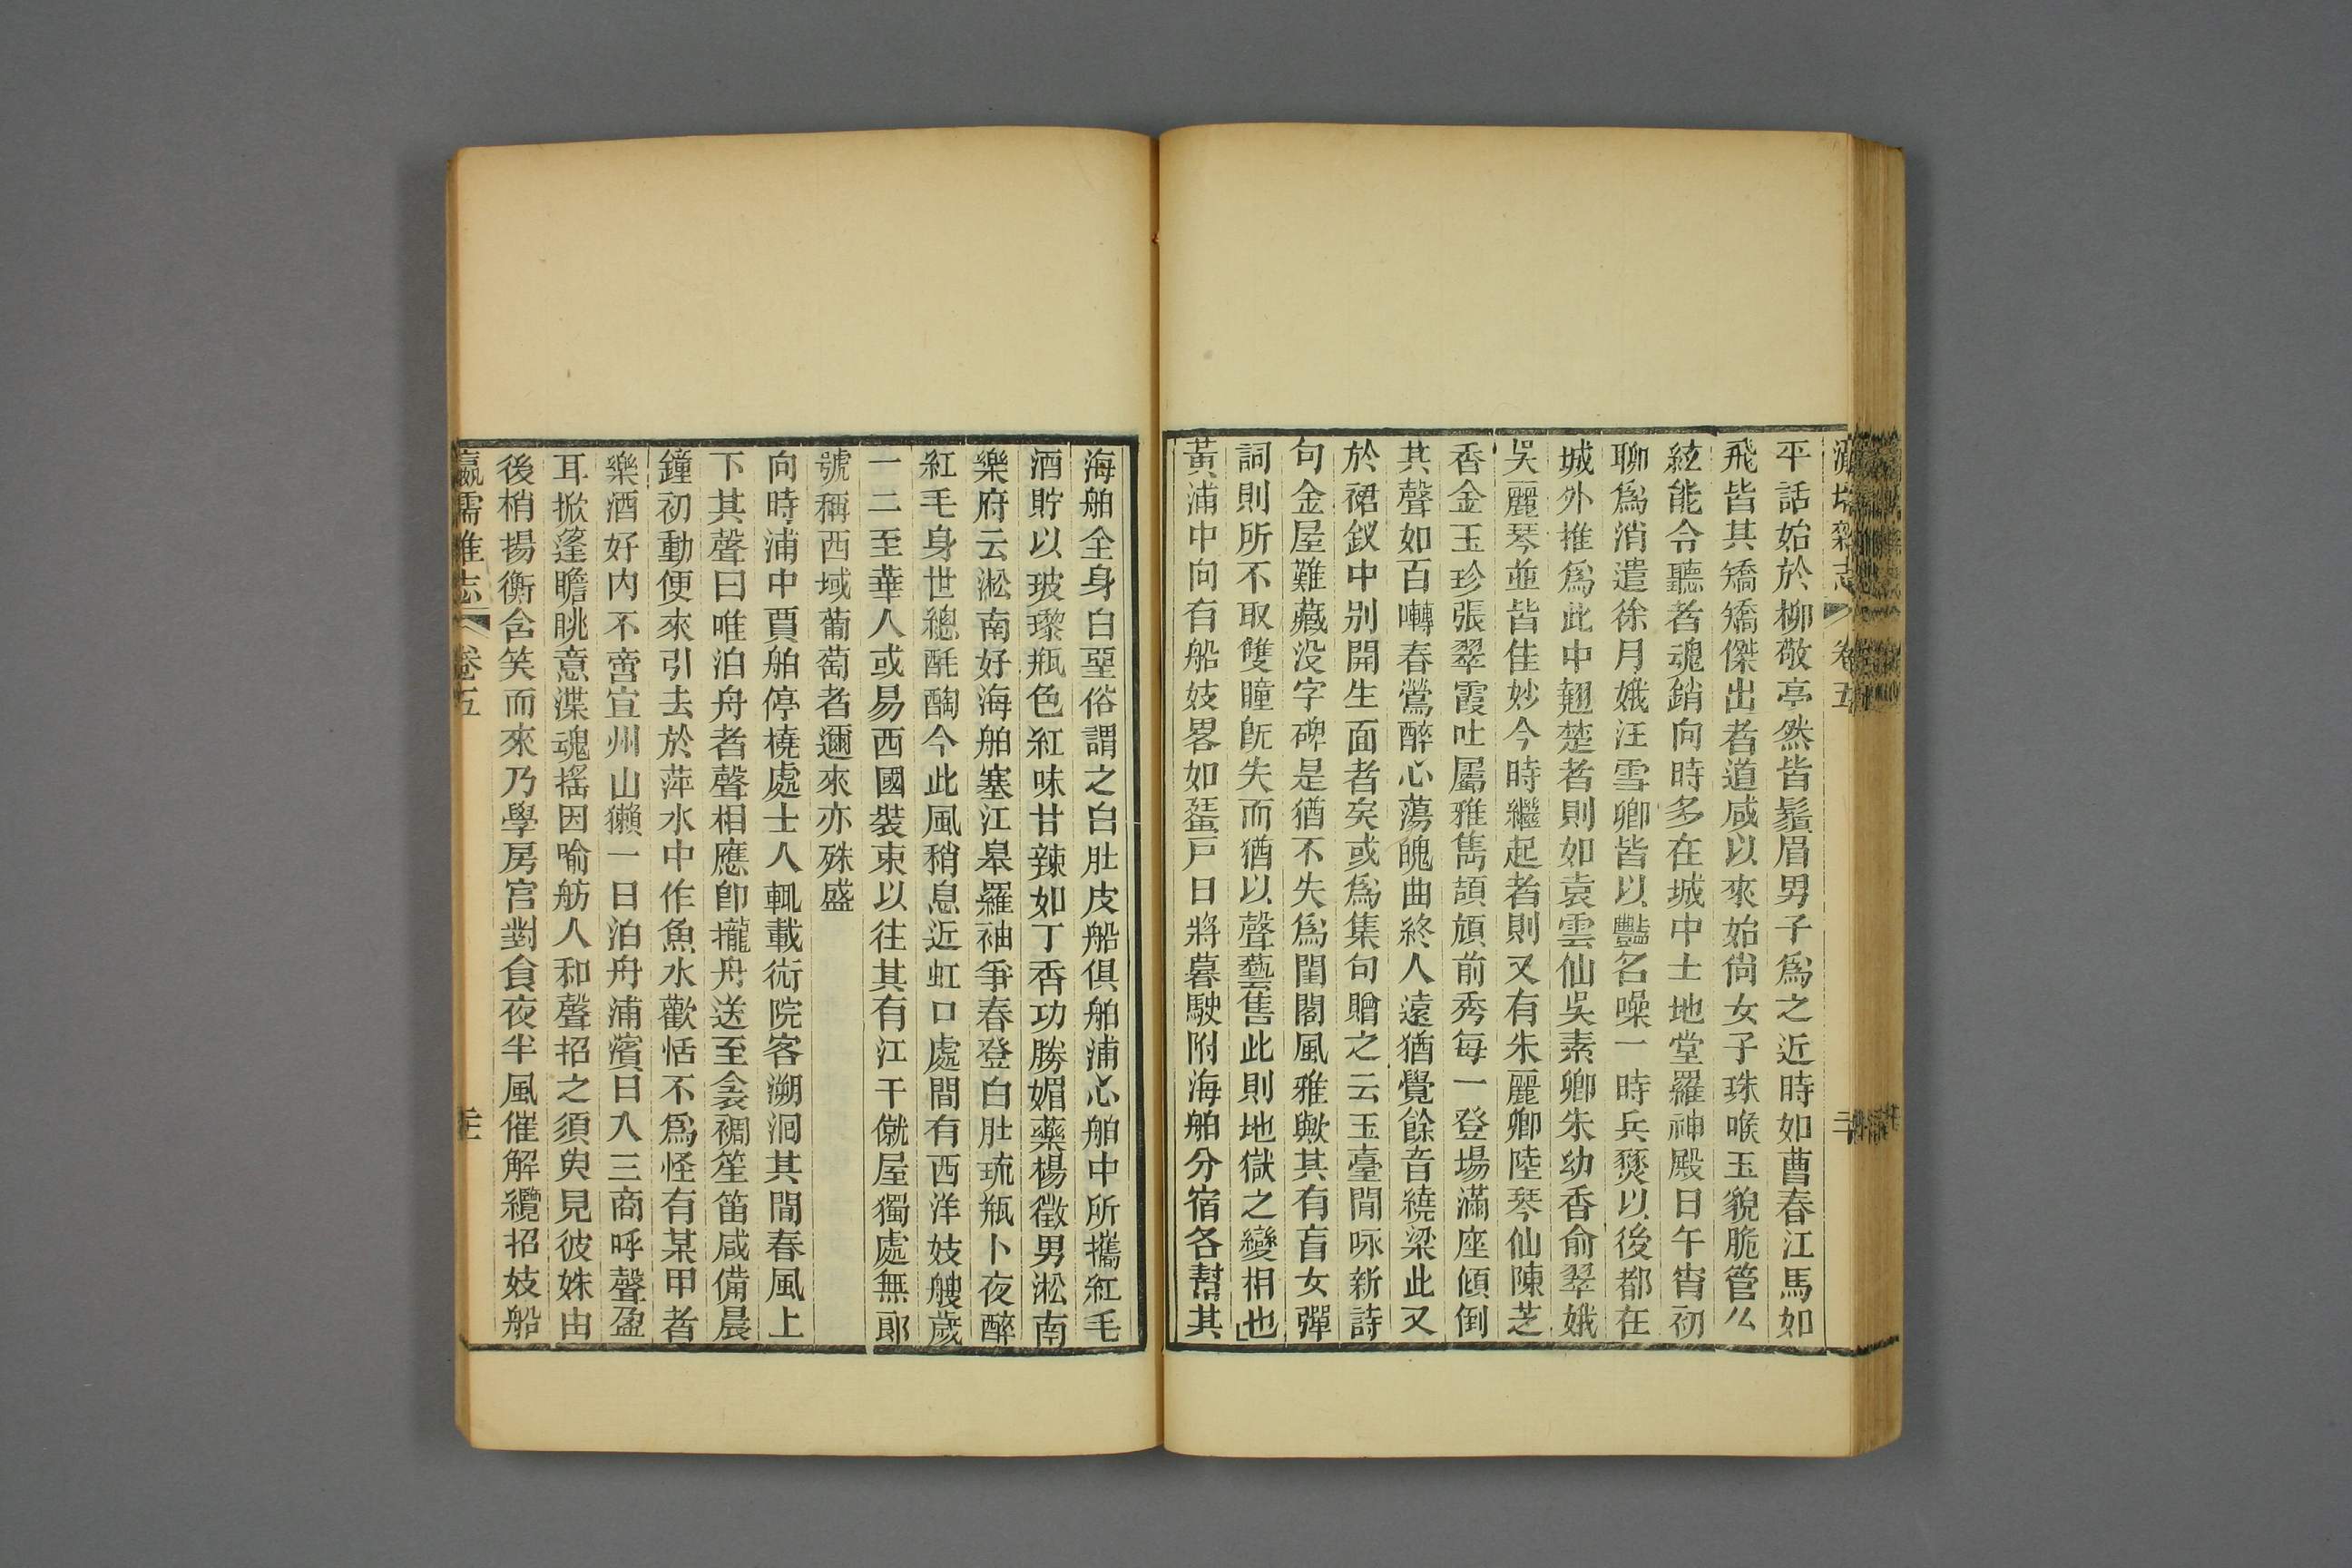 平話始於柳敬亭然皆鬚眉男子爲之近時如曹春江馬如
飛皆其矯矯傑出者道咸以來始尚女子珠喉玉貌脆管么
絃能令聽者魂銷向時多在城中土地堂羅神殿日午宵初
聊爲消遣徐月娥汪雪卿皆以豔名噪一時兵燹以後都在
城外推爲此中翹楚者則如袁雲仙吳素卿朱幼香俞翠娥
吳麗琴並皆佳妙今時繼起者則又有朱麗卿陸琴仙陳芝
香金玉珍張翠霞吐屬雅雋頡頏前秀每一登場滿座傾倒
其聲如百囀春鶯醉心蕩魄曲終人遠猶覺餘音繞梁此又
於裙釵中别開生面者矣或爲集句贈之云玉臺閒咏新詩
句金屋難藏没字碑是猶不失爲閨閣風雅歟其有盲女彈
詞則所不取雙瞳旣失而猶以聲藝售此則地獄之變相也
黃浦中向有船妓畧如蜑戸日將暮駛附海舶分宿各幫其
海舶全身白堊俗謂之白肚皮船俱舶浦心舶中所攜紅毛
酒貯以玻瓈瓶色紅味甘辣如丁香功勝媚藥楊徵男淞南
樂府云淞南好海舶塞江皋羅袖爭春登白肚琉瓶卜夜醉
紅毛身世總酕醄今此風稍息近虹口處間有西洋妓艘歲
一二至華人或易西國裝束以往其有江干僦屋獨處無郎
號稱西域葡萄者邇來亦殊盛
向時浦中賈舶停橈處士人輒載衏院客溯洄其間春風上
下其聲曰唯泊舟者聲相應卽攏舟送至衾裯笙笛咸備晨
鐘初動便來引去於萍水中作魚水歡恬不爲怪有某甲者
樂酒好内不啻宣州山獺一日泊舟浦濱日入三商呼聲盈
耳掀篷瞻眺意渫魂搖因喻舫人和聲招之須臾見彼姝由
後梢揚衡含笑而來乃學房官對食夜半風催解纜招妓船
瀛壖雜志
卷五